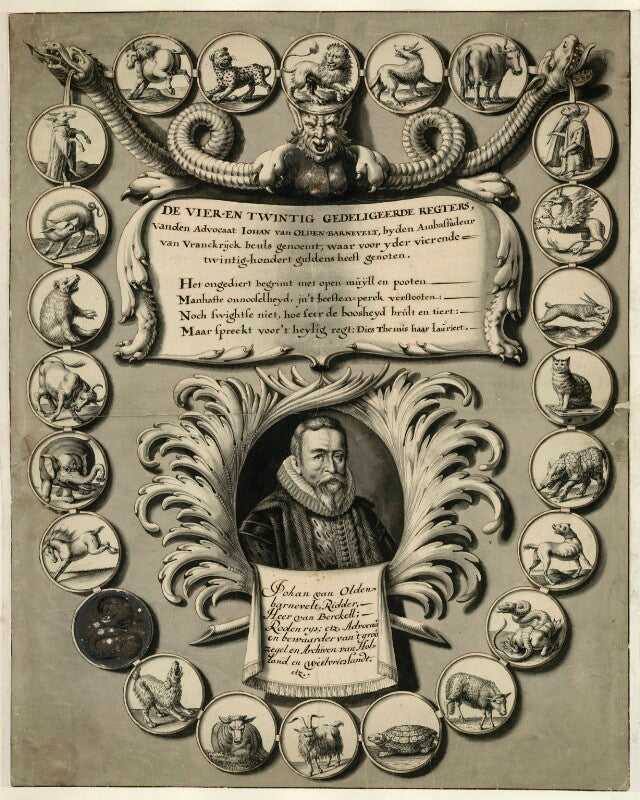 DE VIER-EN TWINTIG GEDELIGEERDE REGTERS,
vanden Advocaat IOHAN van OLDEN-BARNEVELT, by den Ambassadeur
van Vranckrijck beuls genoemt, waar voor yder vierende
twintig-hondert guldens heeft genoten.
Het ongediert begrimt met open muyll en pooten
Manhafte onnooselheyd, in't beesten-perck verstooten:
Noch swightse niet, hoe seer de boosheyd brult en tiert:
Maar spreekt voor't heylig regt: Dies Themis haar lauriert.
Johan van Olden-
barnevelt, Ridder,
Heer van Berckell;
Rodenrys; etz. Advocaat
en bewaarder van 't groo
zegel en Archiven van Hol-
land en Westvrieslandt;
etz.